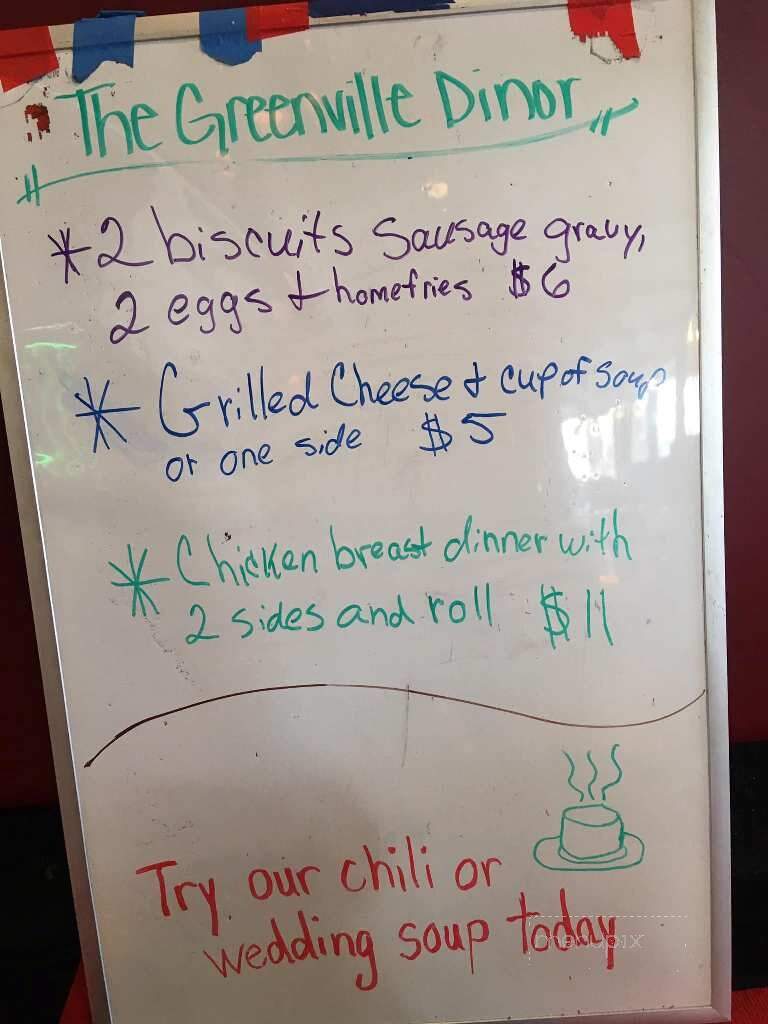 The Greenville Dinor
* 2 biscuits sausage gravy,
2 eggs + homefries $6
* Grilled Cheese + cup of soup
or one side $5
* Chicken breast dinner with
2 sides and roll $11
Try our chili or
wedding soup today
menupix